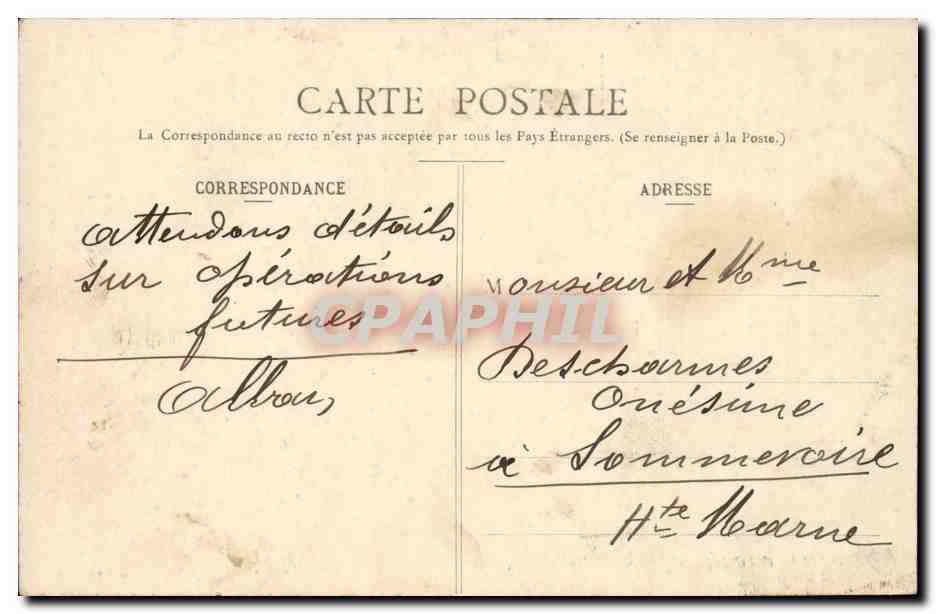 CARTE POSTALE
La Correspondance au recto n'est pas acceptée par tous les Pays Étrangers. (Se renseigner à la Poste.)
CORRESPONDANCE
attendons détails
sur opérations
futures
ADRESSE
Monsieur et Mme
Descharmes
Onésime
à Sommevoire
Hte Marne
CPAPHIL